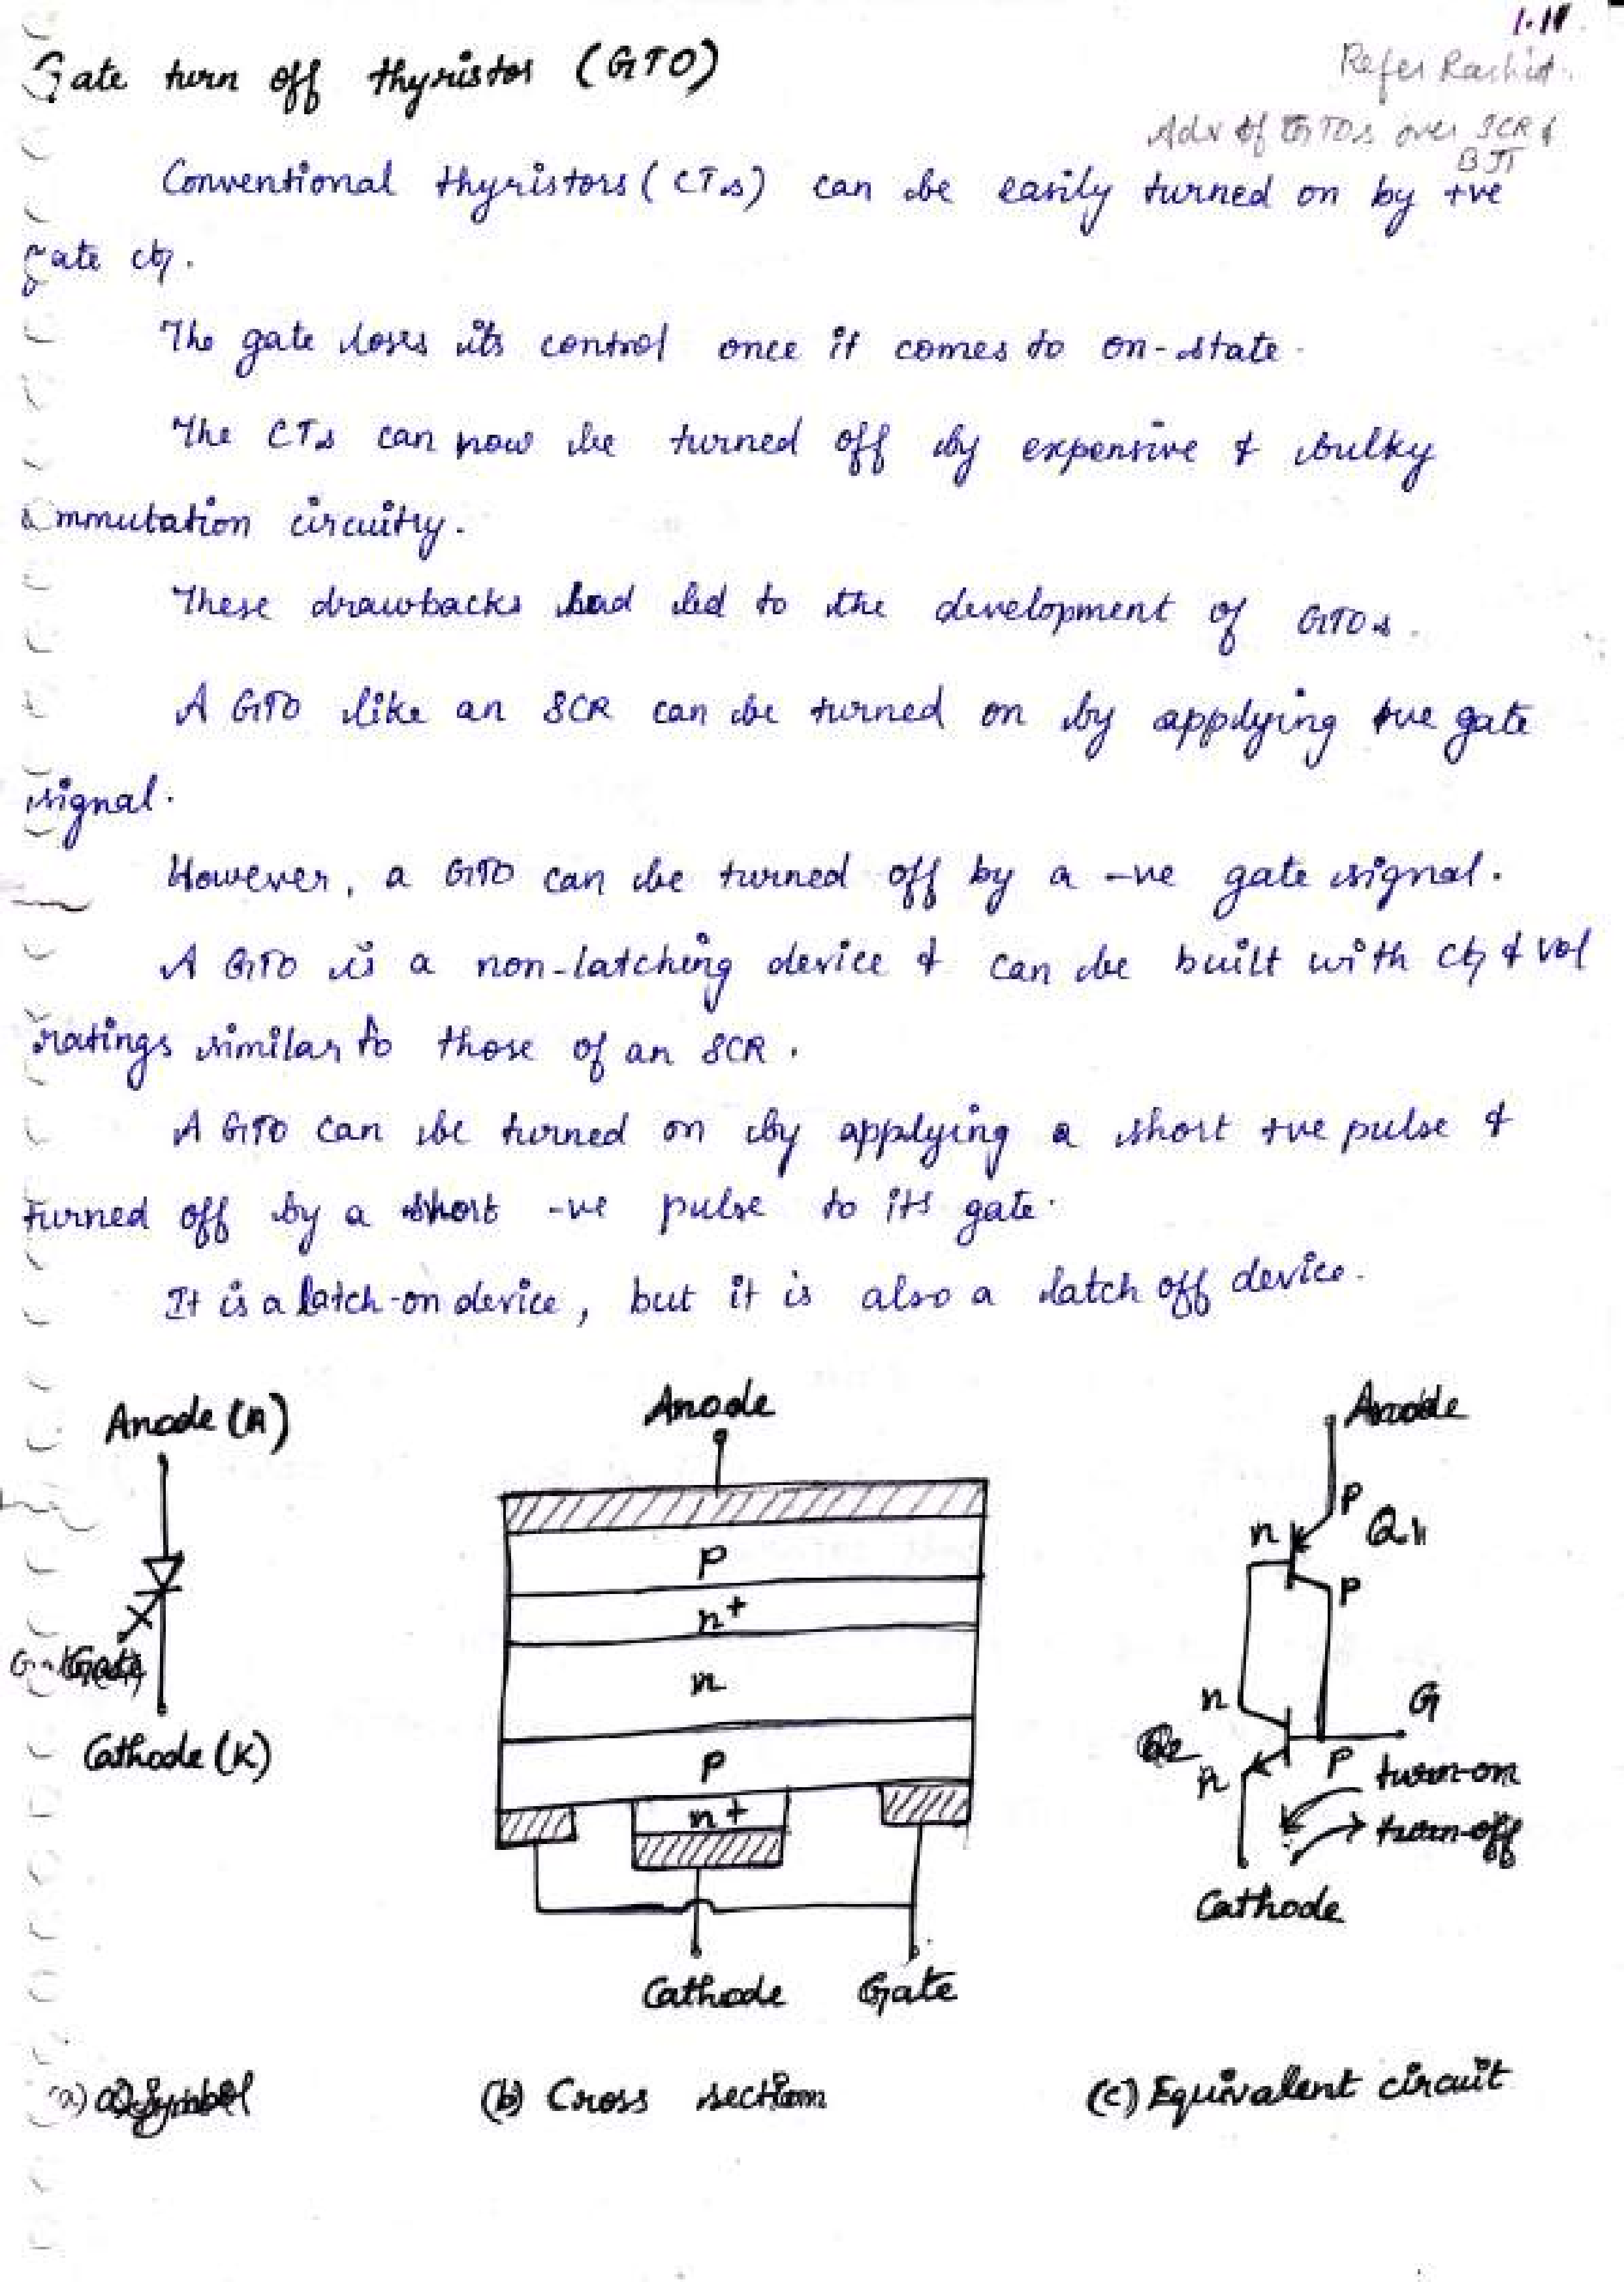 1.11
Refer Rashid.
Gate turn off thyristor (GTO)
Adv of GTOs over SCR &
BJT
Conventional thyristors (CTs) can be easily turned on by +ve
gate ct.
The gate loses its control once it comes to on-state.
The CTs can now be turned off by expensive & bulky
ommutation circuitry.
These drawbacks had led to the development of GTOs.
A GTO like an SCR can be turned on by applying +ve gate
signal.
However, a GTO can be turned off by a -ve gate signal.
A GTO is a non-latching device & can be built with ct & vol
ratings similar to those of an SCR.
A GTO can be turned on by applying a short +ve pulse &
turned off by a short -ve pulse to its gate.
It is a latch-on device, but it is also a latch off device.
Anode (A)
Gate
Cathode (K)
(a) Symbol
Anode
p
n+
n
p
n+
Cathode Gate
(b) Cross section
Anode
P
n Q1
P
n G
Q2
n P turn-on
turn-off
Cathode
(c) Equivalent circuit